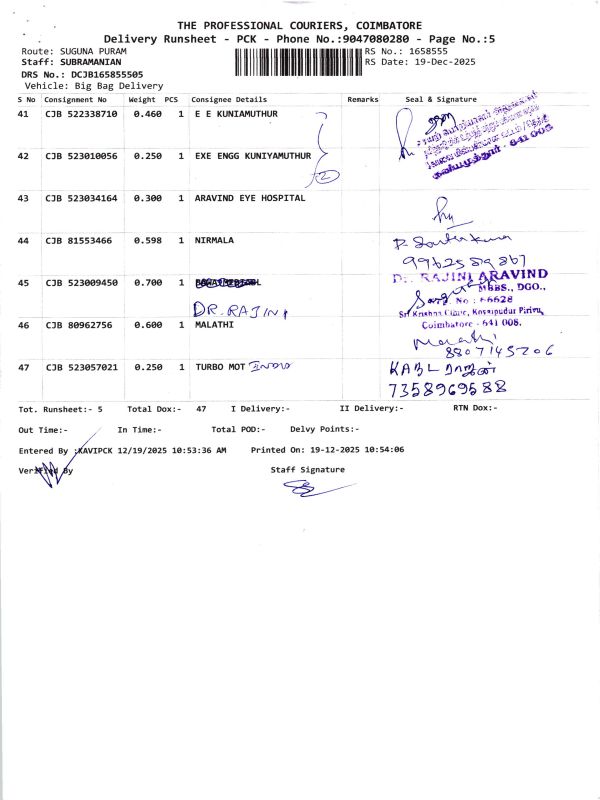 THE PROFESSIONAL COURIERS, COIMBATORE
Delivery Runsheet - PCK - Phone No.:9047080280 - Page No.:5
Route: SUGUNA PURAM RS No.: 1658555
Staff: SUBRAMANIAN RS Date: 19-Dec-2025
DRS No.: DCJB165855505
Vehicle: Big Bag Delivery
S No Consignment No Weight PCS Consignee Details Remarks Seal & Signature
41 CJB 522338710 0.460 1 E E KUNIAMUTHUR
42 CJB 523010056 0.250 1 EXE ENGG KUNIYAMUTHUR
2
641 008
43 CJB 523034164 0.300 1 ARAVIND EYE HOSPITAL
44 CJB 81553466 0.598 1 NIRMALA
9962559867
45 CJB 523009450 0.700 1
DR. RAJINI
Dr. RAJINI ARAVIND
MBBS., DGO.,
No : 66628
Sri Krishna Clinic, Kovaipudur Pirivu,
Coimbatore - 641 008.
46 CJB 80962756 0.600 1 MALATHI
Malathi
8807145206
47 CJB 523057021 0.250 1 TURBO MOT INDIO
7358969588
Tot. Runsheet:- 5 Total Dox:- 47 I Delivery:- II Delivery:- RTN Dox:-
Out Time:- In Time:- Total POD:- Delvy Points:-
Entered By :KAVIPCK 12/19/2025 10:53:36 AM Printed On: 19-12-2025 10:54:06
Verified By Staff Signature